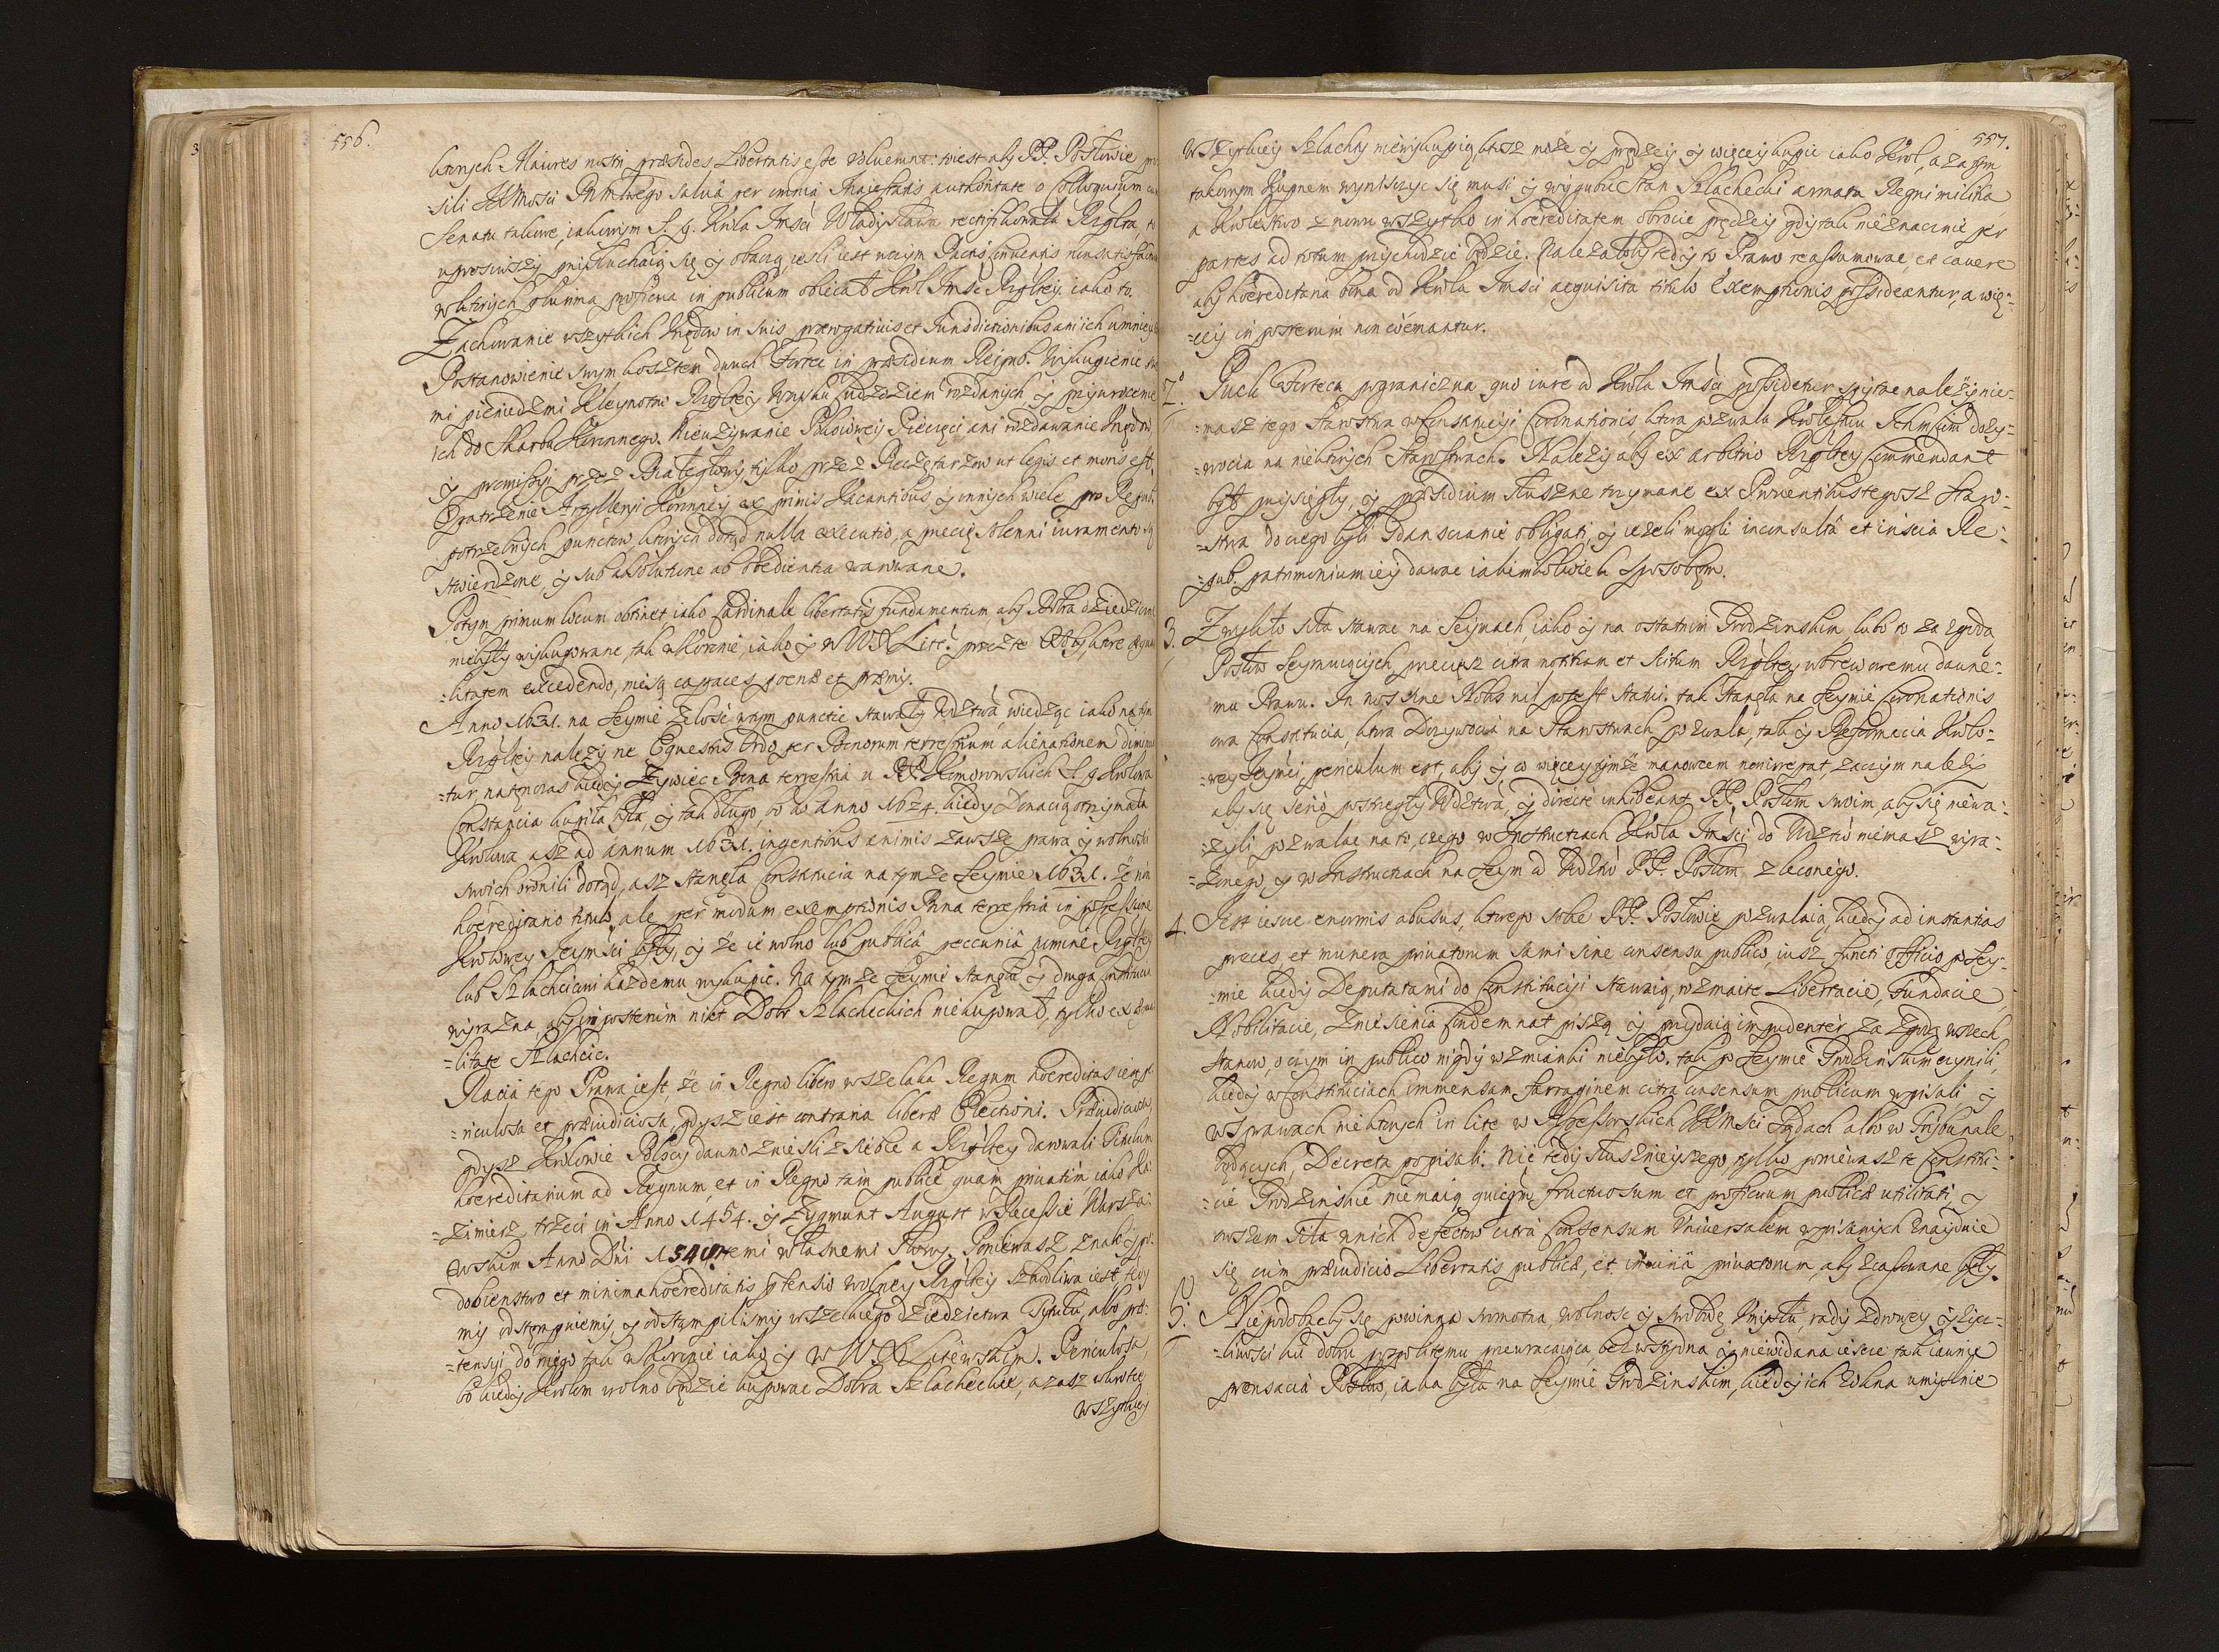 556.
których Maiores nostri præsides Libertatis esse voluerunt: wiest aby PP. Posłowie
=sili JKMości Pana Naszego salvâ per omnia Maiestatis authoritate o Colloquium
Senatu takowe, iakowym S. p. Króla Jmści Władysława rectifikowała Rzplta,
uprosiwszy przysłuchaią się y obaczą, iesli iest wczym Pactis Conventis
w których plurima proficua in publicum obiecał Król Jmść Rzpltey. iako to.
Zachowanie wszytkich Urzędów in suis prærogativis et Jurisdictionibus ani ich
Postanowienie swym kosztem dwuch Fortec in præsidium Reipub. Wykupienie
mi pieniędzmi Kleynotów Rzpltey ludziom rozdanych y przywrocenie
ich do Skarbu Koronnego. Nieużywanie Pokoiowey Pieczęci ani rozdawanie Urzędów
y promissyi przez tylko przez Pieczętarzow ut legis et moris est,
Opatrzenie Artylleryi Koronney ex primis Vacantibus y innych wiele pro Repub.
potrzebnych punctow których dotąd nulla executio, a przecię solenni iuramento są
stwierdzone, y sub absolutione ab obedientia warowane.
Potym primum locum obtinet, iako Cardinale libertatis fundamentum, aby Dobra dziedziczne
niebyły wykupowane, tak w Koronie, iako y w WX Litt: przez te Osoby, które
=litatem excedendo, nie są capaces poenæ et præmij.
Anno 1631. na Seymie żałość wtym punctie stawały Wdztwa, wiedząc iako na tym
Rzpltey należy ne Equestris Ordo per Bonorum terrestrium alienationem
=tur, na ten czas kiedy Żywiec Bona terrestria u PP. Komorowskich S. p. Krolowa
Constancia kupiła była, y tak długo bo do Anno 1624. kiedy Donacią otrzymała
Krolowa asz ad annum 1631. ingentibus animis zawsze prawa y wolności
swoich bronili dotąd, asz stanęła Constitucia na tymże Seymie 1631. że nie
hoereditario titulo, ale per modum exemptionis Bona terrestria in possessione
Krolowey Jeymści były, y że ie wolno lub publicâ peccuniâ nomine Rzpltey
lub Szlachcicowi każdemu wykupić. Na tymże Seymie stanęła y druga Constitucia
wyrazna aby in posterum nikt Dobr Szlacheckich niekupował, tylko
=litate Szlachcic.
Racia tego Prawa iest, że in Regno libero wszelaka Regum hoereditas iest
=riculosa et præiudiciosa, gdysz iest contraria liberæ Electioni. Præiudiciosa,
gdysz Królowie Polscy dawno znieśli z siebie a Rzpltey darowali Titulum
hoereditarium ad Regnum, et in Regno tam publicè quam privatim iako Ka:
=zimierz trzeci in Anno 1454. y Zygmunt August w Recessie Warsza:
ewskim Anno Dni temi własnemi słowy. Poniewasz znak y po:
dobienstwo et minima hoereditatis prætensio wolney Rzpltey szkodliwa iest, tedy
my odstępuiemy, y odstąpilismy wszelakiego dziedzictwa Tytułu, albo præ:
=tensyi do niego tak w Koronie iako y w WX Litewskim. Periculosa,
bo kiedy Krolom wolno będzie kupować Dobra Szlacheckie, azasz wkrotce
wszytkiey
557.
Wszytkiey Szlachty niewykupią, ktosz może y prędzey y więcey kupić iako Krol, a zatym
takowym Kupnem wyniszczyć się musi y wygubić Stan Szlachecki armata Regni militia
a Krolestwo znowu wszytko in hoereditatem obrocić prędzey gdy tak nieznacznie per
partes ad totum przychodzić będzie. Należałoby tedy to Prawo reassumować, et cavere
aby hoereditaria bona od Krola Jmści acquisita titulo Exemptionis possideantur, a wię:
=cey in posterum non coëmantur.
2° Puck Forteca pograniczna, quo iure od Króla Jmści possidetur spytać należy nie:
=masz tego Starostwa w Constituciji Coronationis, ktora pozwala Krolestwu Ichmściom doży:
=wocia na niektórych Starostwach. Należy aby ex arbitrio Rzpltey Commendant
był przysięgły, y præsidium słuszne trzymane ex Proventibus tegosz Staro:
=stwa do czego byli Gdansczanie obligati, y ieżeli mogli inconsultâ et insciâ Re:
=pub. patrimonium iey dawać iakimkolwiek sposobem.
3. Zwykło siła stawać na Seymach, iako y na ostatnim Grodzinskim, lubo to za zgodą
Posłow Seymuiących, przeciesz citra notitiam et scitum Rzpltey wbrew onemu dawne:
mu Prawu. In nos sine Nobis nil potest statui. tak stanęła na Seymie Coronationis
owa Constitucia, ktora Dożywocia na Starostwach pozwala, tak y Reformacia Krolo:
wey Jeymści, periculum est, aby y co więcey tymże manowcem non irrepat, zaczym należy
aby się serio postrzegły Wdztwa, y directè inhibeant PP. Posłom swoim, aby się niewa:
=żyli pozwalać na to, czego w Instructiach Króla Jmści do Wdztw niemasz wyra:
=żonego, y w Instructiach na Seym od Wdztw PP. Posłom zleconego.
4. Jest iescze enormis abusus, ktorego sobie PP. Posłowie pozwalaią, kiedy ad instantias
preces, et munera privatorum sami sine consensu publico, iusz functi Officio po Sey:
=mie kiedy Deputatami do Constituciyi stawaią, wzmaite Libertacie, Fundacie
Nobilitacie, zniesienia Condemnat piszą y przydaią impudenter za zgodą wszech
stanow, o czym in publico nigdy wzmianki niebyło. tak po Seymie Grodzinskim czynili,
kiedy w Constituciach immensam farraginem citra consensum publicum wpisali y
w sprawach niektorych in lite w Assessorskich JKMści Sądach albo w Tribunale
będących, Decreta popisali. Nic tedy słusznieyszego tylko poniewasz te Constitu:
=cie Grodzinskie niemaią quicqm fructuosum et proficuum publicæ utilitati, y
owszem siła w nich defectow citra Consensum Universalem wpisanych znayduie
się cum præiudicio Libertatis publicæ, et iniuriâ privatorum, aby zcassowane były.
5: Niepodobaby się powinna sromotna, wolnosc y swobodę Umysłu, rady zdrowey y życz:
=liwości ku dobru pospolitemu przewracaiąca bezwstydna y niewidana iescze tak iawnie
prensacia Posłow, iaka była na Seymie Grodzinskim, kiedy ich umyslnie